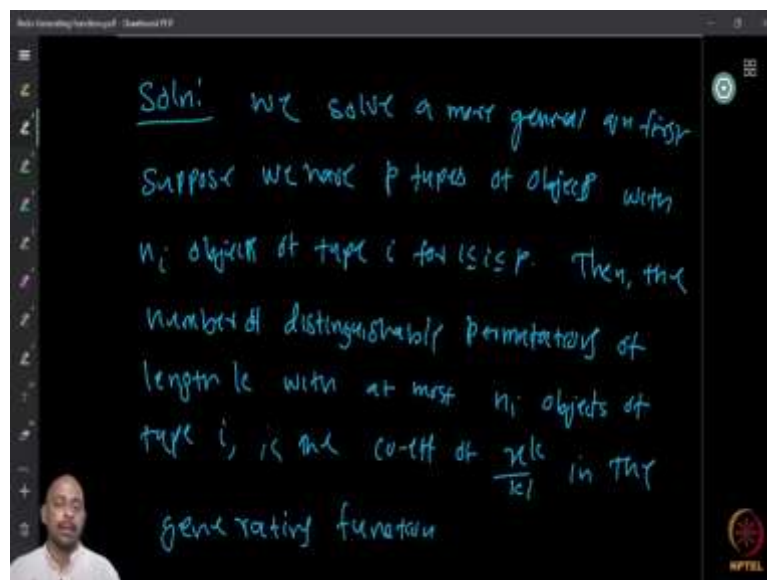 Soln: We solve a more general qn first
Suppose we have p types of objects with
n_i objects of type i for 1≤i≤p. Then, the
number of distinguishable permutations of
length k with at most n_i objects of
type i, is the co-eff of x^k/k! in the
generating function
NPTEL